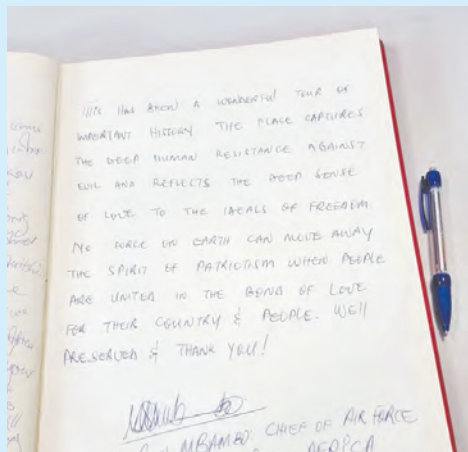 THIS HAS BEEN A WONDERFUL TOUR OF
IMPORTANT HISTORY THE PLACE CAPTURES
THE DEEP HUMAN RESISTANCE AGAINST
EVIL AND REFLECTS THE DEEP SENSE
OF LOVE TO THE IDEALS OF FREEDOM
NO FORCE ON EARTH CAN MOVE AWAY
THE SPIRIT OF PATRIOTISM WHEN PEOPLE
ARE UNITED IN THE BOND OF LOVE
FOR THEIR COUNTRY & PEOPLE. WELL
PRESERVED & THANK YOU!
MBAMBO CHIEF OF AIR FORCE